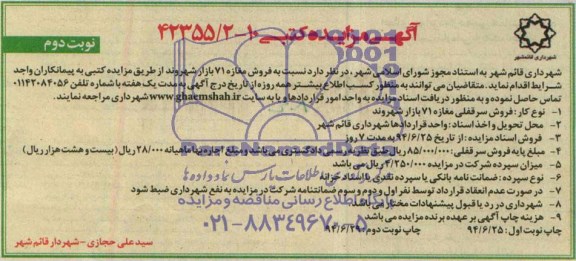 آگهی مزایده کتبی ۱۰-۴۲۳۵۵/۲
نوبت دوم
شهرداری قائمشهر
شهرداری قائم شهر به استناد مجوز شورای اسلامی شهر، در نظر دارد نسبت به فروش مغازه ۷۱ بازار شهروند از طریق مزایده کتبی به پیمانکاران واجد
شرایط اقدام نماید. متقاضیان می توانند به منظور کسب اطلاع بیشتر همه روزه از تاریخ درج آگهی به مدت یک هفته با شماره تلفن ۰۱۱۴۲۰۸۴۰۵۶
تماس حاصل نموده و به منظور دریافت اسناد مزایده به واحد امور قراردادها و یا به سایت www.ghaemshahr.ir شهرداری مراجعه نمایند.
۱- نوع کار: فروش سرقفلی مغازه ۷۱ بازار شهروند
۲- محل تحویل و اخذ اسناد: واحد قراردادها شهرداری قائم شهر
۳- فروش اسناد مزایده: از تاریخ ۹۴/۶/۲۵ به مدت ۷ روز
۴- مبلغ پایه فروش سرقفلی: ۸۵/۰۰۰/۰۰۰ ریال طبق نظریه رسمی دادگستری می باشد و مبلغ اجاره بها ماهیانه ۲۸/۰۰۰ ریال (بیست و هشت هزار ریال)
۵- میزان سپرده شرکت در مزایده ۴/۲۵۰/۰۰۰ ریال می باشد
۶- نوع سپرده: ضمانت نامه بانکی یا سپرده نقدی یا اسناد خزانه
۷- در صورت عدم انعقاد قرارداد توسط نفر اول و دوم و سوم ضمانتنامه شرکت در مزایده به نفع شهرداری ضبط شود
۸- شهرداری در رد یا قبول پیشنهادات مختار می باشد
۹- هزینه چاپ آگهی بر عهده برنده مزایده می باشد
چاپ نوبت اول: ۹۴/۶/۲۵ چاپ نوبت دوم: ۹۴/۶/۲۹
سید علی حجازی - شهردار قائم شهر
پایگاه اطلاع رسانی مناقصه و مزایده
۰۲۱-۸۸۳۴۹۶۷۰-۵